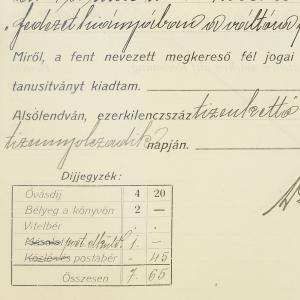 fedezet hiányában a váltóm
Miről, a fent nevezett megkereső fél jogai
tanusitványt kiadtam.
Alsólendván, ezerkilenczszáz tizenkettő
tizennyolczadik napján.
Dijjegyzék:
Óvásdij 4 20
Bélyeg a könyvön 2 —
Vitelbér . .
Másolás post. elküld. 1 . —
Közlövés postabér - 45
Összesen 7. 65